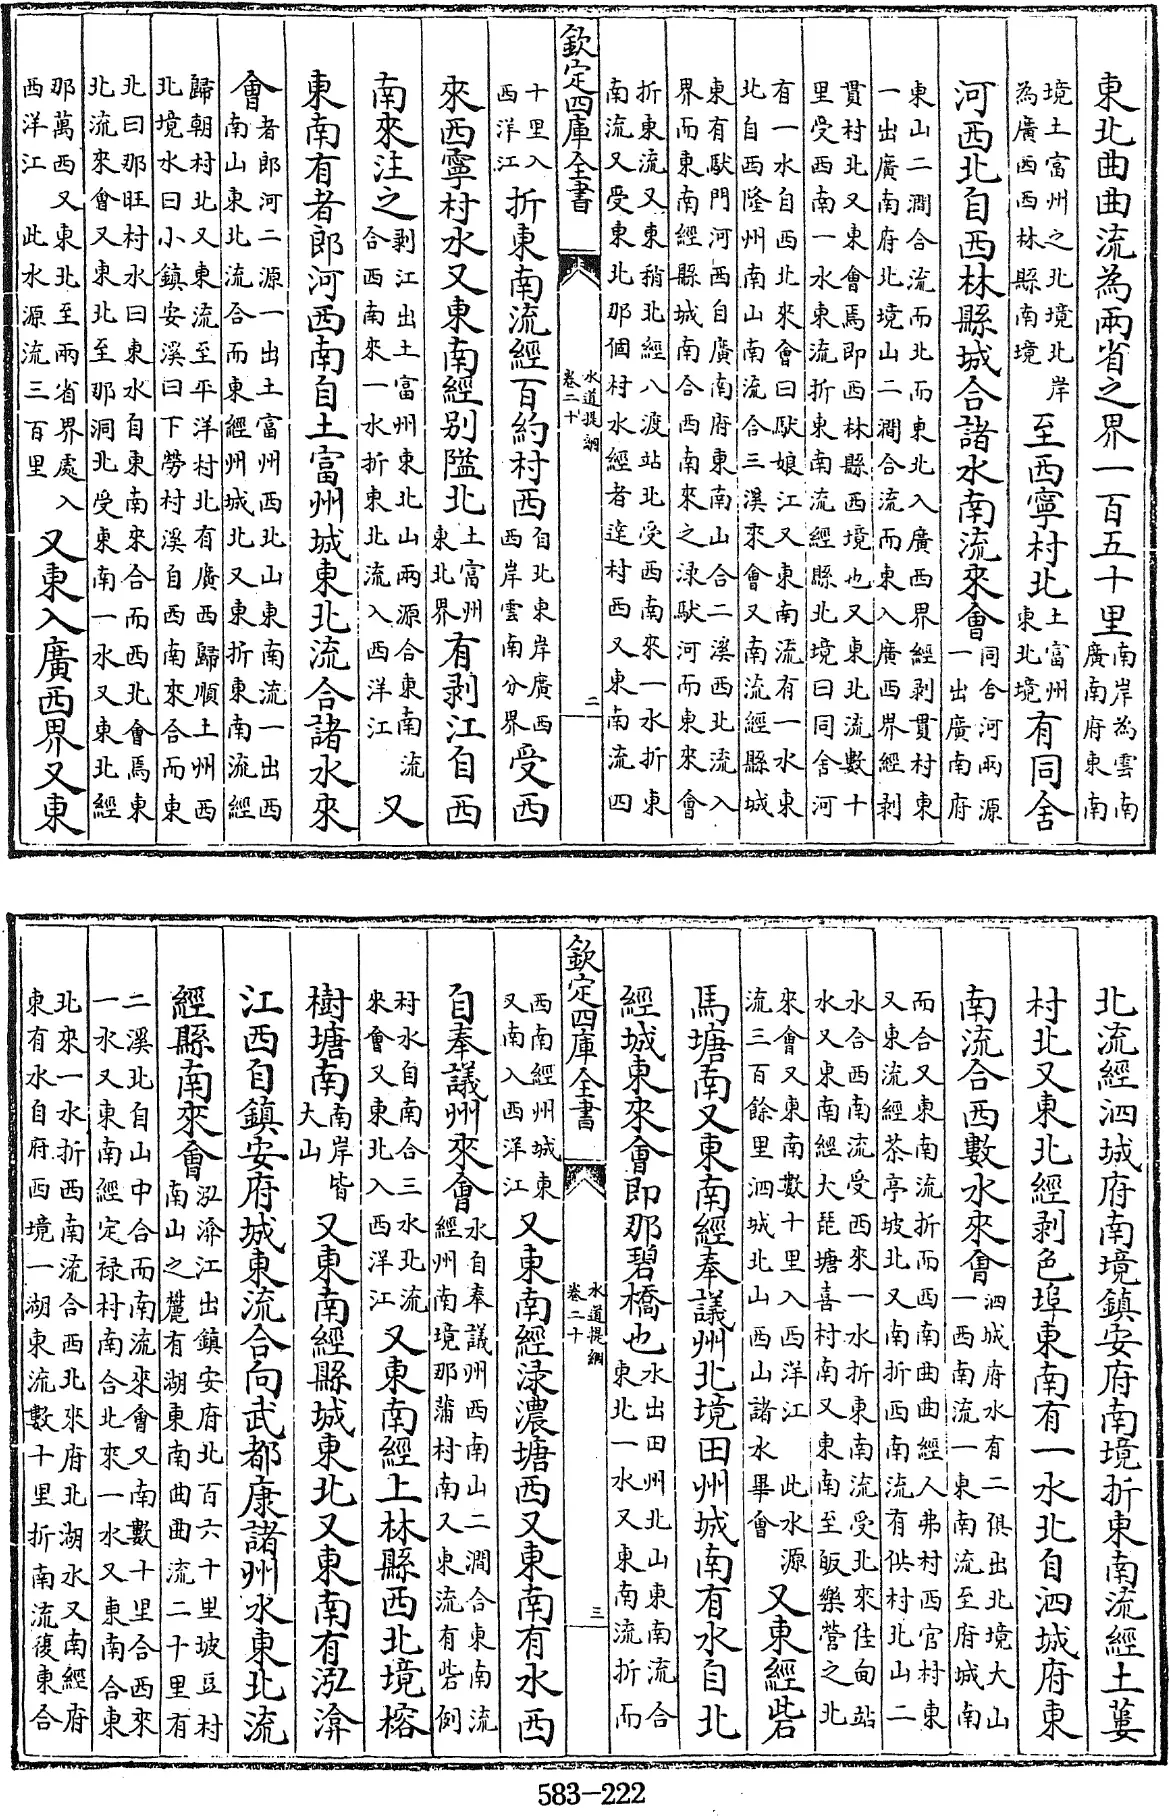 東北曲曲流為兩省之界一百五十里南岸為雲南
廣南府東南
境土富州之北境北岸
為廣西西林縣南境至西寧村北土富州
東北境有同舍
河西北自西林縣城合諸水南流來會同舍河兩源
一出廣南府
東山二澗合流而北而東北入廣西界經剥貫村東
一出廣南府北境山二澗合流而東入廣西界經剥
貫村北又東會焉即西林縣西境也又東北流數十
里受西南一水東流折東南流經縣北境曰同舍河
有一水自西北來會曰馱娘江又東南流有一水東
北自西隆州南山南流合三溪來會又南流經縣城
東有馱門河西自廣南府東南山合二溪西北流入
界而東南經縣城南合西南來之淥馱河而東來會
折東流又東稍北經八渡站北受西南來一水折東
南流又受東北那個村水經者達村西又東南流四
欽定四庫全書
水道提綱
卷二十
二
十里入
西洋江折東南流經百約村西自北東岸廣西
西岸雲南分界受西
來西寧村水又東南經别隘北土富州
東北界有剥江自西
南來注之剥江出土富州東北山兩源合東南流
合西南來一水折東北流入西洋江又
東南有者郎河西南自土富州城東北流合諸水來
會者郎河二源一出土富州西北山東南流一出西
南山東北流合而東經州城北又東折東南流經
歸朝村北又東流至平洋村北有廣西歸順土州西
北境水曰小鎮安溪曰下勞村溪自西南來合而東
北曰那旺村水曰東水自東南來合而西北會焉東
北流來會又東北至那洞北受東南一水又東北經
那萬西又東北至兩省界處入
西洋江此水源流三百里又東入廣西界又東
北流經泗城府南境鎮安府南境折東南流經土蔞
村北又東北經剥色埠東南有一水北自泗城府東
南流合西數水來會泗城府水有二俱出北境大山
一西南流一東南流至府城南
而合又東南流折而西南曲曲經人弗村西官村東
又東流經茶亭坡北又南折西南流有供村北山二
水合西南流受西來一水折東南流受北來佳甸站
水又東南經大琵塘喜村南又東南至皈樂營之北
來會又東南數十里入西洋江此水源
流三百餘里泗城北山西山諸水畢會又東經砦
馬塘南又東南經奉議州北境田州城南有水自北
經城東來會即那碧橋也水出田州北山東南流合
東北一水又東南流折而
欽定四庫全書
水道提綱
卷二十
三
西南經州城東
又南入西洋江又東南經淥濃塘西又東南有水西
自奉議州來會水自奉議州西南山二澗合東南流
經州南境那蒲村南又東流有砦倒
村水自南合三水北流
來會又東北入西洋江又東南經上林縣西北境榕
樹塘南南岸皆
大山又東南經縣城東北又東南有泓渰
江西自鎮安府城東流合向武都康諸州水東北流
經縣南來會泓渰江出鎮安府北百六十里坡豆村
南山之麓有湖東南曲曲流二十里有
二溪北自山中合而南流來會又南數十里合西來
一水又東南經定禄村南合北來一水又東南合東
北來一水折西南流合西北來府北湖水又南經府
東有水自府西境一湖東流數十里折南流復東合
583-222